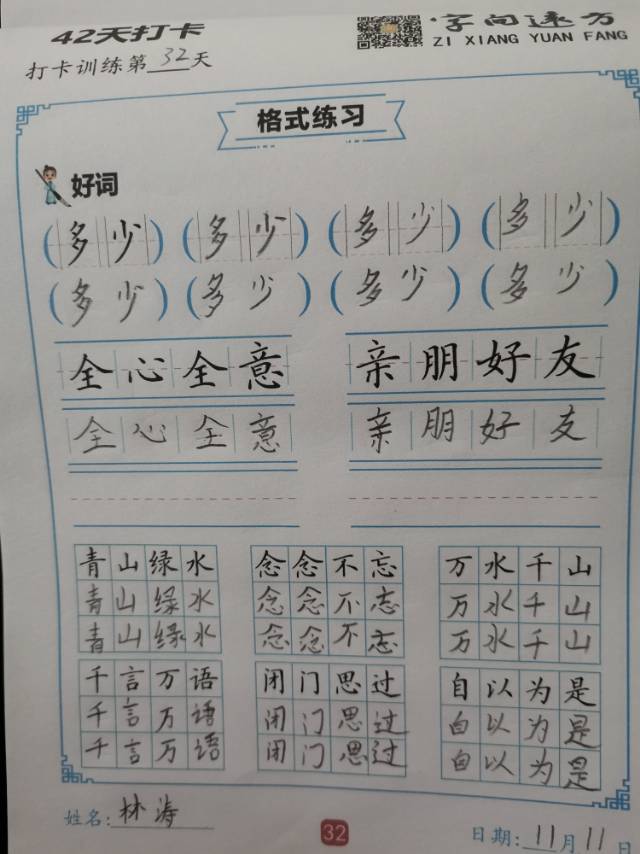 42天打卡
字间速方
ZI XIANG YUAN FANG
打卡训练第32天
格式练习
好词
(多少)(多少)(多少)(多少)
(多少)(多少)(多少)(多少)
全心全意 亲朋好友
全心全意 亲朋好友
青山绿水 念念不忘 万水千山
青山绿水 念念不忘 万水千山
青山绿水 念念不忘 万水千山
千言万语 闭门思过 自以为是
千言万语 闭门思过 自以为是
千言万语 闭门思过 自以为是
姓名:林涛
32
日期:11月11日